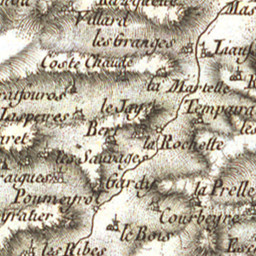 Villard
Mas
les Granges
Coste Chaude
la Martelle
le Jay
Tempura
Laspeires
Bert
la Rochette
les Sauvages
Gardy
la Prelle
Poumeyrol
Courbeyre
le Bois
les Ribes